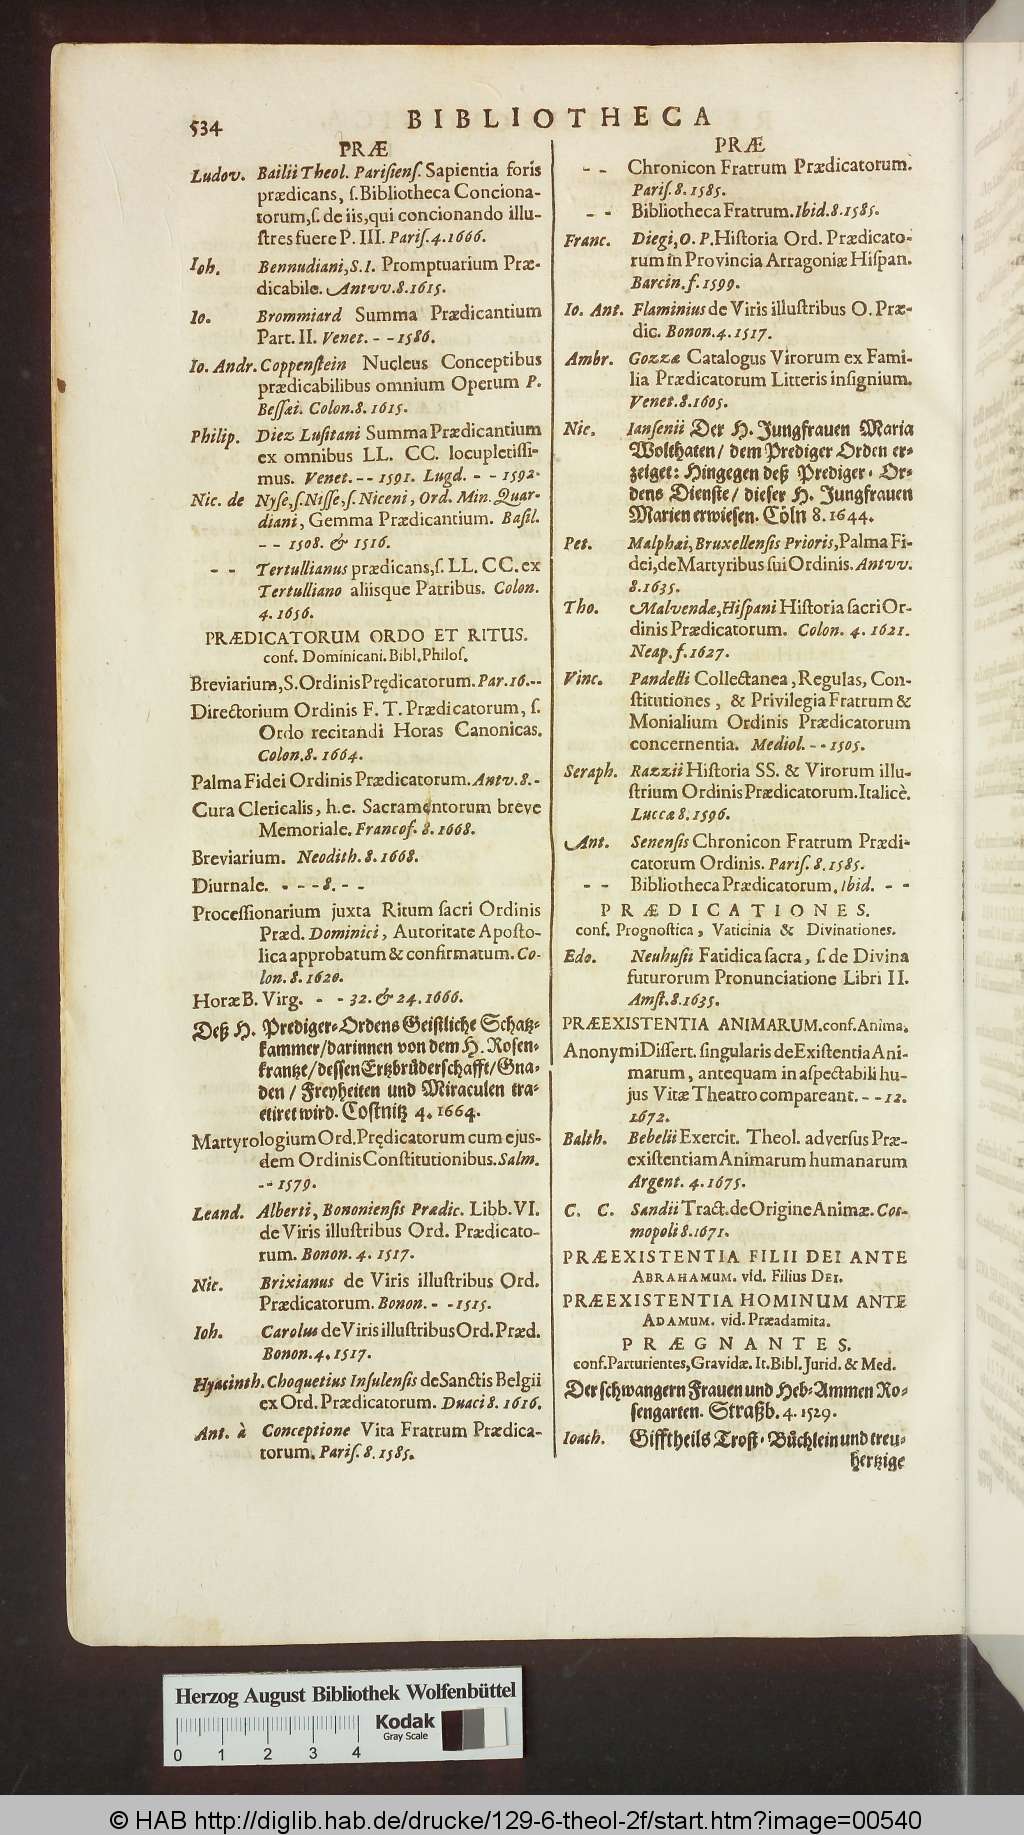 534
BIBLIOTHECA
PRÆ
Ludov. Bailii Theol. Pariſienſ. Sapientia foris
prædicans, ſ. Bibliotheca Conciona-
torum, ſ. de iis, qui concionando illu-
ſtres fuere P. III. Pariſ. 4. 1666.
Ioh. Bennudiani, S. I. Promptuarium Præ-
dicabile. Antvv. 8. 1615.
Io. Brommiard Summa Prædicantium
Part. II. Venet. - - 1586.
Io. Andr. Coppenſtein Nucleus Conceptibus
prædicabilibus omnium Operum P.
Beſſæi. Colon. 8. 1615.
Philip. Diez Luſitani Summa Prædicantium
ex omnibus LL. CC. locupletiſſi-
mus. Venet. - - 1591. Lugd. - - 1592.
Nic. de Nyſe, ſ. Niſſe, ſ. Niceni, Ord. Min. Quar-
diani, Gemma Prædicantium. Baſil.
- - 1508. & 1516.
- - Tertullianus prædicans, ſ. LL. CC. ex
Tertulliano aliisque Patribus. Colon.
4. 1656.
PRÆDICATORUM ORDO ET RITUS.
conf. Dominicani. Bibl. Philoſ.
Breviarium, S. Ordinis Prędicatorum. Par. 16. - -
Directorium Ordinis F. T. Prædicatorum, ſ.
Ordo recitandi Horas Canonicas.
Colon. 8. 1664.
Palma Fidei Ordinis Prædicatorum. Antv. 8. -
Cura Clericalis, h. e. Sacramentorum breve
Memoriale. Francof. 8. 1668.
Breviarium. Neodith. 8. 1668.
Diurnale. - - - 8. - -
Proceſſionarium juxta Ritum ſacri Ordinis
Præd. Dominici, Autoritate Apoſto-
lica approbatum & confirmatum. Co-
lon. 8. 1620.
Horæ B. Virg. - - 32. & 24. 1666.
Deß H. Prediger-Ordens Geiſtliche Schatz-
kammer/ darinnen von dem H. Roſen-
krantze/ deſſen Ertzbrüderſchafft/ Gna-
den / Freyheiten und Miraculen tra-
ctiret wird. Coſtnitz 4. 1664.
Martyrologium Ord. Prędicatorum cum ejus-
dem Ordinis Conſtitutionibus. Salm.
- - 1579.
Leand. Alberti, Bononienſis Prædic. Libb. VI.
de Viris illuſtribus Ord. Prædicato-
rum. Bonon. 4. 1517.
Nic. Brixianus de Viris illuſtribus Ord.
Prædicatorum. Bonon. - - 1515.
Ioh. Carolus de Viris illuſtribus Ord. Præd.
Bonon. 4. 1517.
Hyacinth. Choquetius Inſulenſis de Sanctis Belgii
ex Ord. Prædicatorum. Duaci 8. 1616.
Ant. à Conceptione Vita Fratrum Prædica-
torum. Pariſ. 8. 1585.
PRÆ
- - Chronicon Fratrum Prædicatorum.
Pariſ. 8. 1585.
- - Bibliotheca Fratrum. Ibid. 8. 1585.
Franc. Diegi, O. P. Hiſtoria Ord. Prædicato-
rum in Provincia Arragoniæ Hiſpan.
Barcin. f. 1599.
Io. Ant. Flaminius de Viris illuſtribus O. Præ-
dic. Bonon. 4. 1517.
Ambr. Gozzæ Catalogus Virorum ex Fami-
lia Prædicatorum Litteris inſignium.
Venet. 8. 1605.
Nic. Ianſenii Der H. Jungfrauen Maria
Wolthaten/ dem Prediger Orden er-
zeiget: Hingegen deß Prediger-Or-
dens Dienſte/ dieſer H. Jungfrauen
Marien erwieſen. Cöln 8. 1644.
Pet. Malphai, Bruxellenſis Prioris, Palma Fi-
dei, de Martyribus ſui Ordinis. Antvv.
8. 1635.
Tho. Malvendæ, Hiſpani Hiſtoria ſacri Or-
dinis Prædicatorum. Colon. 4. 1621.
Neap. f. 1627.
Vinc. Pandelli Collectanea, Regulas, Con-
ſtitutiones, & Privilegia Fratrum &
Monialium Ordinis Prædicatorum
concernentia. Mediol. - - 1505.
Seraph. Razzii Hiſtoria SS. & Virorum illu-
ſtrium Ordinis Prædicatorum. Italicè.
Lucca 8. 1596.
Ant. Senenſis Chronicon Fratrum Prædi-
catorum Ordinis. Pariſ. 8. 1585.
- - Bibliotheca Prædicatorum. Ibid. - -
PRÆDICATIONES.
conf. Prognoſtica, Vaticinia & Divinationes.
Edo. Neuhuſii Fatidica ſacra, ſ. de Divina
futurorum Pronunciatione Libri II.
Amſt. 8. 1635.
PRÆEXISTENTIA ANIMARUM. conf. Anima.
Anonymi Diſſert. ſingularis de Exiſtentia Ani-
marum, antequam in aſpectabili hu-
jus Vitæ Theatro compareant. - - 12.
1672.
Balth. Bebelii Exercit. Theol. adverſus Præ-
exiſtentiam Animarum humanarum
Argent. 4. 1675.
C. C. Sandii Tract. de Origine Animæ. Cos-
mopoli 8. 1671.
PRÆEXISTENTIA FILII DEI ANTE
ABRAHAMUM. vid. Filius DEI.
PRÆEXISTENTIA HOMINUM ANTE
ADAMUM. vid. Præadamita.
PRÆGNANTES.
conf. Parturientes, Gravidæ. It. Bibl. Jurid. & Med.
Der ſchwangern Frauen und Heb-Ammen Ro-
ſengarten. Straßb. 4. 1529.
Ioach. Gifftheils Troſt-Büchlein und treu-
hertzige
Herzog August Bibliothek Wolfenbüttel
Kodak
Gray Scale
0 1 2 3 4
© HAB http://diglib.hab.de/drucke/129-6-theol-2f/start.htm?image=00540